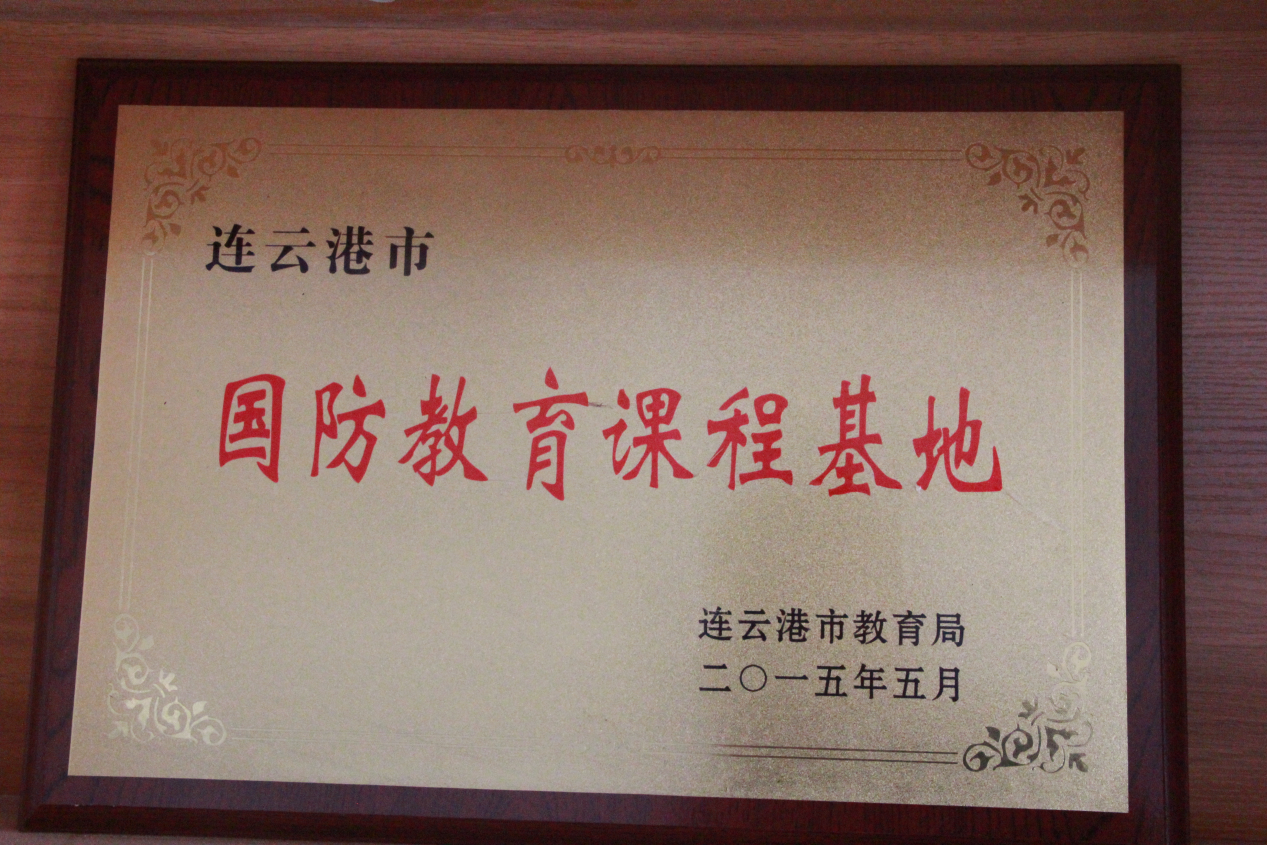 连云港市
国防教育课程基地
连云港市教育局
二〇一五年五月